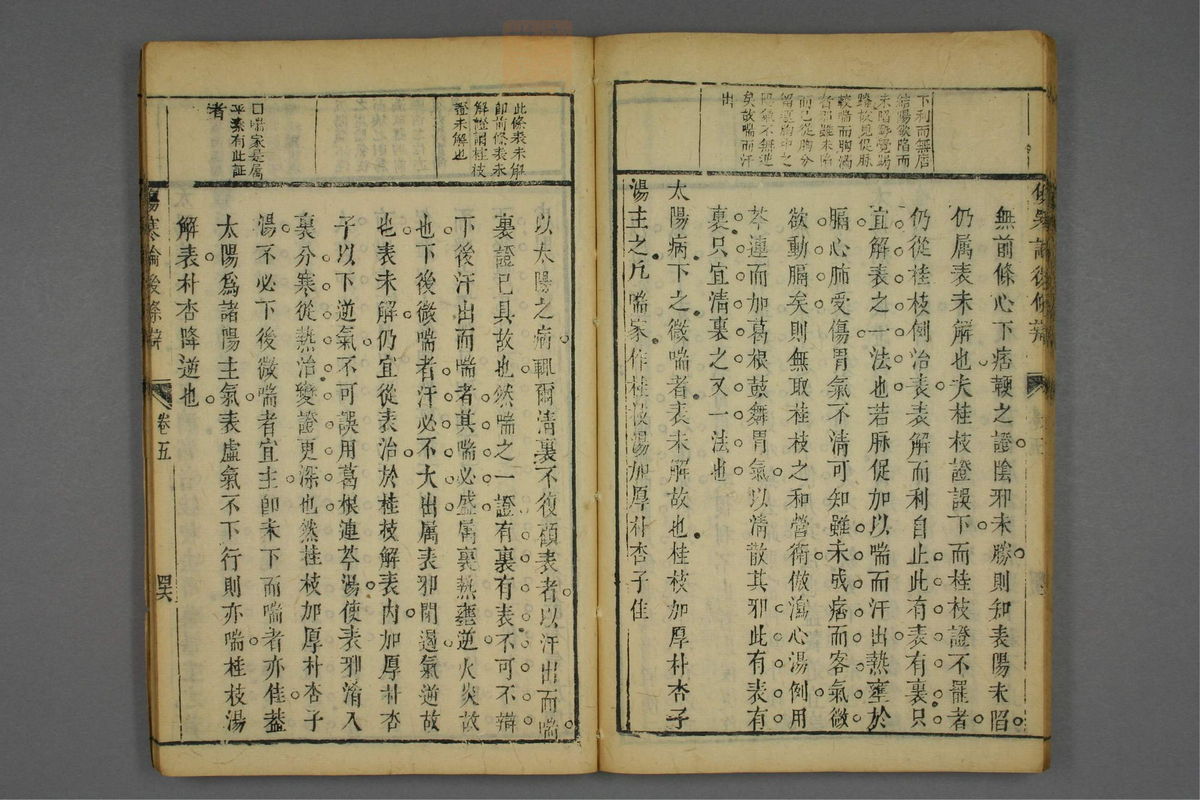 下利而無居
結陽欲陷而
未陷
較喘而胸滿
者邪雖未陷
而已從胸分
矣故喘而汗
出
無前條心下痞鞕之證陰邪未勝則知表陽未陷
仍属表未解也夫桂枝證誤下而桂枝證不罷者
仍從桂枝例治表表解而利自止此有表有裏只
宜解表之一法也若脉促加以喘而汗出熱壅於
膈心肺受傷胃氣不清可知雖未成痞而客氣微
欲動膈矣則無取桂枝之和營衛倣瀉心湯例用
芩連而加葛根鼓舞胃氣以清散其邪此有表有
裏只宜清裏之又一法也
太陽病下之微喘者表未解故也桂枝加厚朴杏子
湯主之凡喘家作桂枝湯加厚朴杏子佳
此條表未解
即前條表未
解證謂桂枝
證未解也
口喘家是属
平素有此証
者
以太陽之病輒爾清裏不復顧表者以汗出而喘
裏證已具故也然喘之一證有裏有表不可不辯
下後汗出而喘者其喘必盛属裏熱壅逆火炎故
也下後微喘者汗必不大出属表邪閉遏氣逆故
也表未解仍宜從表治於桂枝解表內加厚朴杏
子以下逆氣不可誤用葛根連芩湯使表邪淆入
裏分寒從熱治變證更深也然桂枝加厚朴杏子
湯不必下後微喘者宜主即未下而喘者亦佳蓋
太陽爲諸陽主氣表虛氣不下行則亦喘桂枝湯
解表朴杏降逆也
傷寒論後條辯
卷五